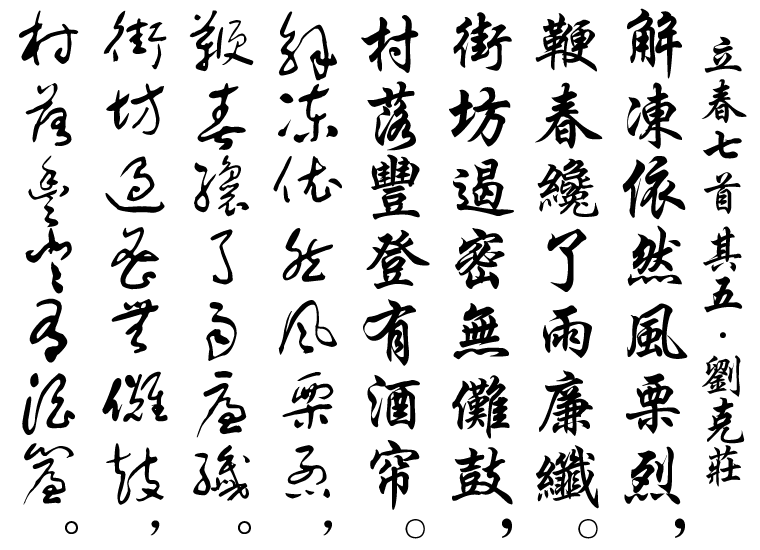 立春七首 其五·劉克莊
解凍依然風栗烈，
鞭春纔了雨廉纖。
街坊遏密無儺鼓，
村落豐登有酒帘。
解凍依然風栗烈，
鞭春纔了雨廉纖。
街坊遏密無儺鼓，
村落豐登有酒簾。